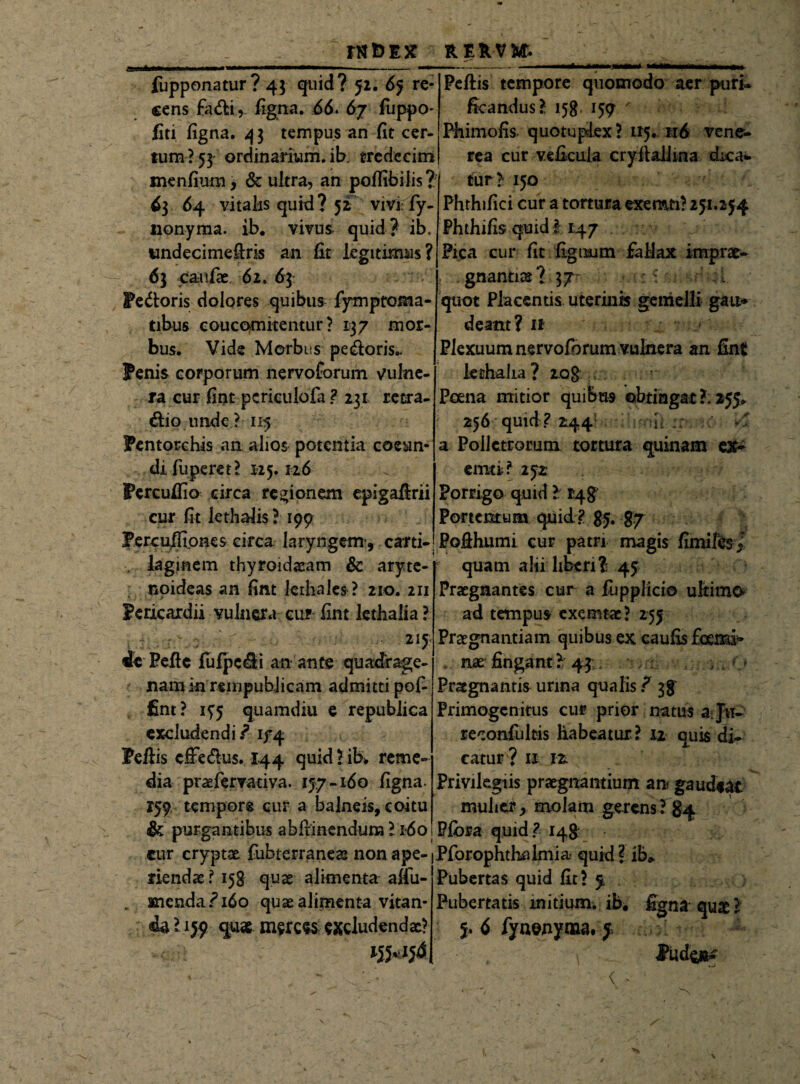 INDEX RERVM.
ſupponatur? 43 quid? 52. 65 re-
cens facti, ſigna. 66. 67 ſuppo-
ſiti ſigna. 43 tempus an ſit cer-
tum? 53 ordinarium. ib. tredecim
menſium, & ultra, an poſſibilis?
63 64 vitalis quid? 52 vivi ſy-
nonyma. ib. vivus quid? ib.
undecimeſtris an ſit legitimus?
63 cauſæ 62. 63
Pectoris dolores quibus ſymptoma-
tibus concomitentur? 137 mor-
bus. Vide Morbus pectoris.
Penis corporum nervoſorum vulne-
ra cur ſint periculoſa? 231 retra-
ctio unde? 115
Pentorchis an alios potentia coeun-
di ſuperet? 125. 126
Percuſſio circa regionem epigaſtrii
cur ſit lethalis? 199
Percuſſiones circa laryngem, carti-
laginem thyroidæam & aryte-
noideas an ſint lethales? 210. 211
Pericardii vulnera cur ſint lethalia?
215
de Peſte ſuſpecti an ante quadrage-
nam in rempublicam admitti poſ-
ſint? 155 quamdiu e republica
excludendi? 154
Peſtis effectus. 144 quid? ib. reme-
dia præſervativa. 157-160 ſigna.
159 tempore cur a balneis, coitu
& purgantibus abſtinendum? 160
cur cryptæ ſubterraneæ non ape-
riendæ? 158 quæ alimenta aſſu-
menda? 160 quæ alimenta vitan-
da? 159 quæ merces excludendæ?
155. 156
Peſtis tempore quomodo aer puri-
ficandus? 158 159
Phimoſis quotuplex? 115. 116 vene-
rea cur veſicula cryſtallina dica-
tur? 150
Phthiſici cur a tortura exemti? 251. 254
Phthiſis quid? 147
Pica cur ſit ſignum fallax impræ-
gnantiæ? 37
quot Placentis uterinis gemelli gau-
deant? 11
Plexuum nervoſorum vulnera an ſint
lethalia? 208
Pœna mitior quibus obtingat? 255.
256 quid? 244
a Pollctrorum tortura quinam ex-
emti? 252
Porrigo quid? 148
Portentum quid? 85. 87
Poſthumi cur patri magis ſimiles,
quam alii liberi? 45
Prægnantes cur a ſupplicio ultimo
ad tempus exemtæ? 255
Prægnantiam quibus ex cauſis fœmi-
næ fingant? 43
Prægnantis urina qualis? 38
Primogenitus cur prior natus a Ju-
reconſultis habeatur? 12 quis di-
catur? 11 12
Privilegiis prægnantium an gaudeat
mulier, molam gerens? 84
Pſora quid? 148
Pſorophthalmia quid? ib.
Pubertas quid ſit? 5
Pubertatis initium. ib. ſigna quæ?
5. 6 ſynonyma. 5
Puden-